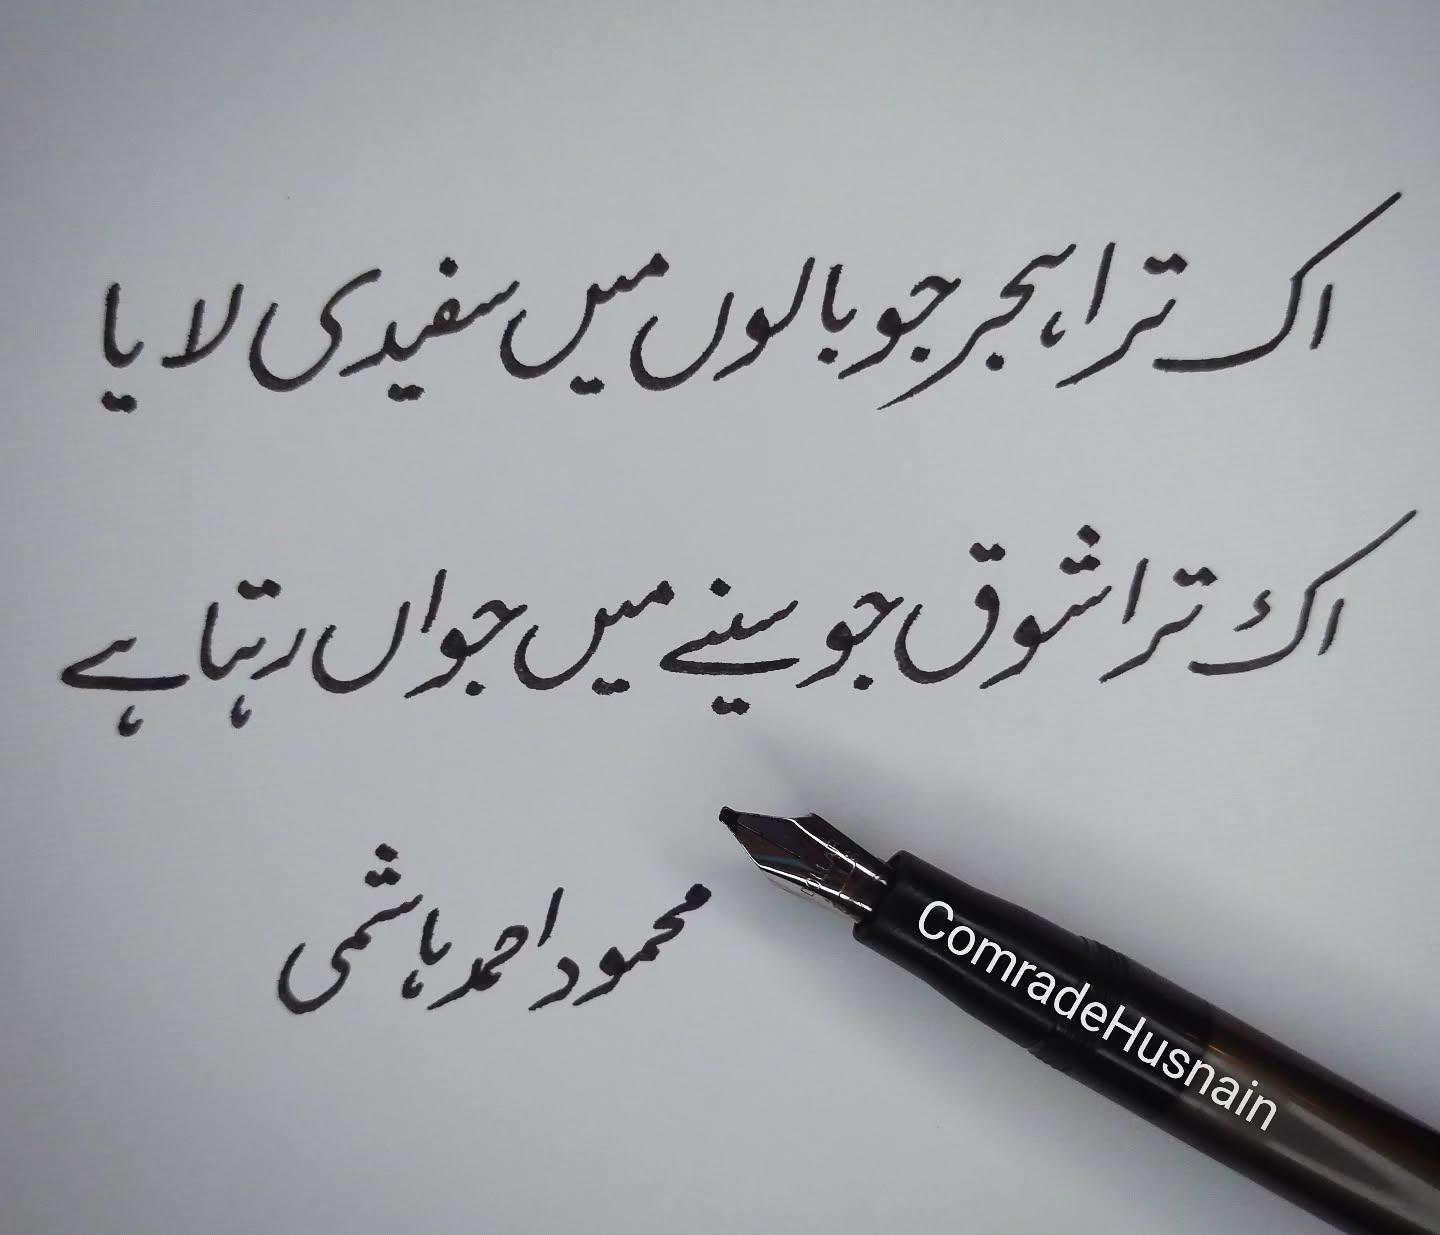 اک ترا ہجر جو بالوں میں سفیدی لایا
اک ترا شوق جو سینے میں جواں رہتا ہے
محمود احمد ہاشمی
ComradeHusnain